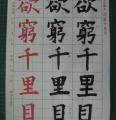 欲窮千里目
欲窮千里目
欲窮千里目